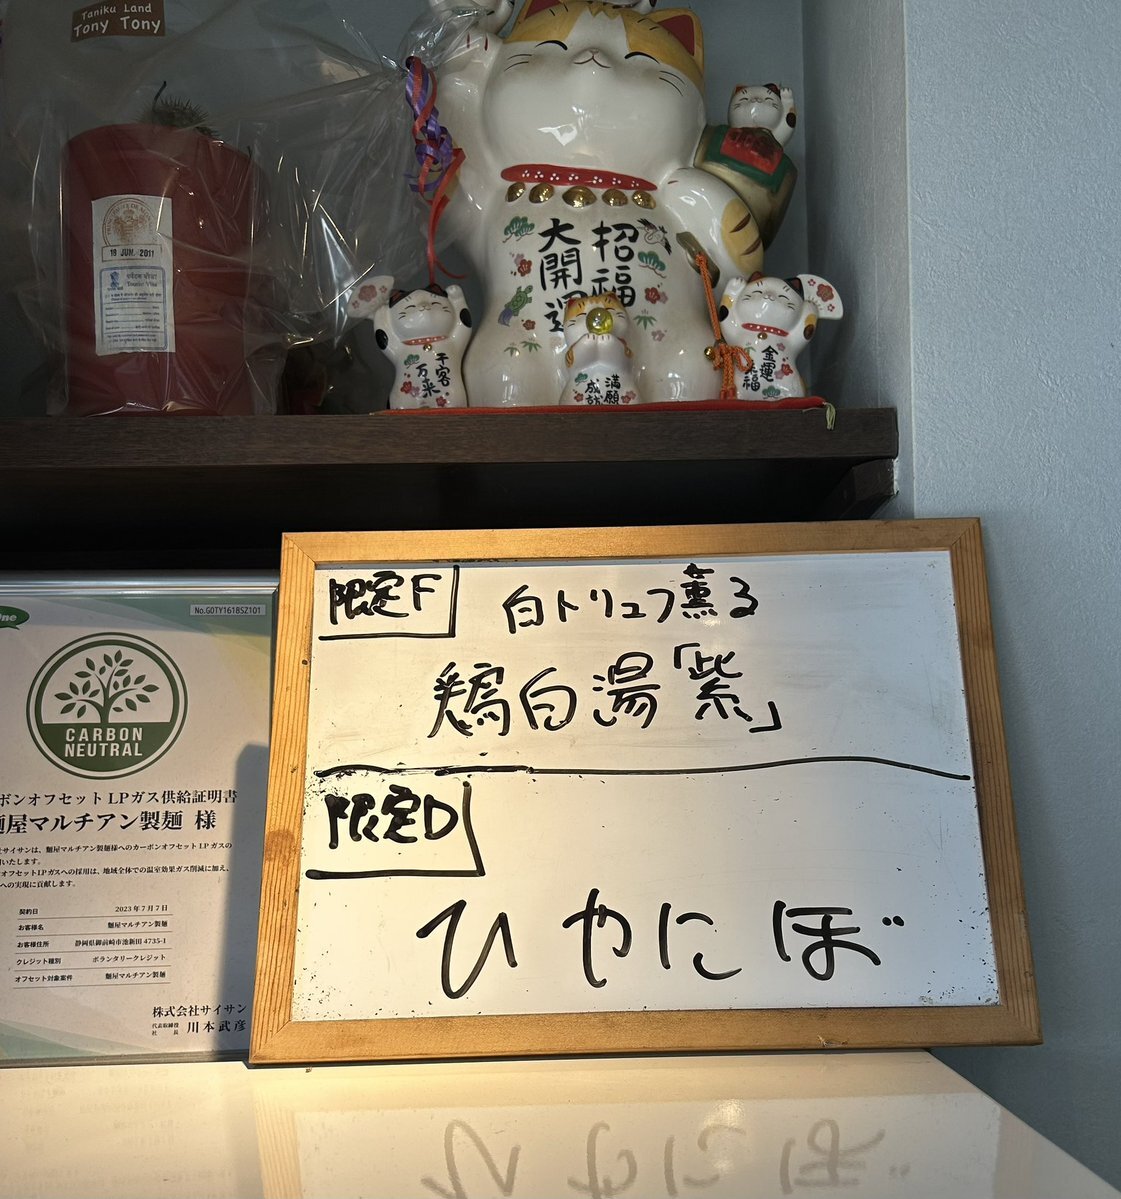 Taniku Land
Tony Tony
18 JUN 2011
Tourist Visa
招福
大開運
千客
万来
満願
成就
金運
来福
No.GOTY161BSZ101
CARBON
NEUTRAL
ボンオフセット LPガス供給証明書
麺屋マルチアン製麺 様
社サイサンは、麺屋マルチアン製麺様へのカーボンオフセット LP ガスの
いたします。
オフセットLPガスへの採用は、地域全体での温室効果ガス削減に加え、
への実現に貢献します。
契約日 2023年7月7日
お客様名 麺屋マルチアン製麺
お客様住所 静岡県御前崎市池新田 4735-1
クレジット種別 ボランタリークレジット
オフセット対象案件 麺屋マルチアン製麺
株式会社サイサン
代表取締役
社長 川本武彦
限定F
白トリュフ薫る
鶏白湯「紫」
限定D
ひやにぼ